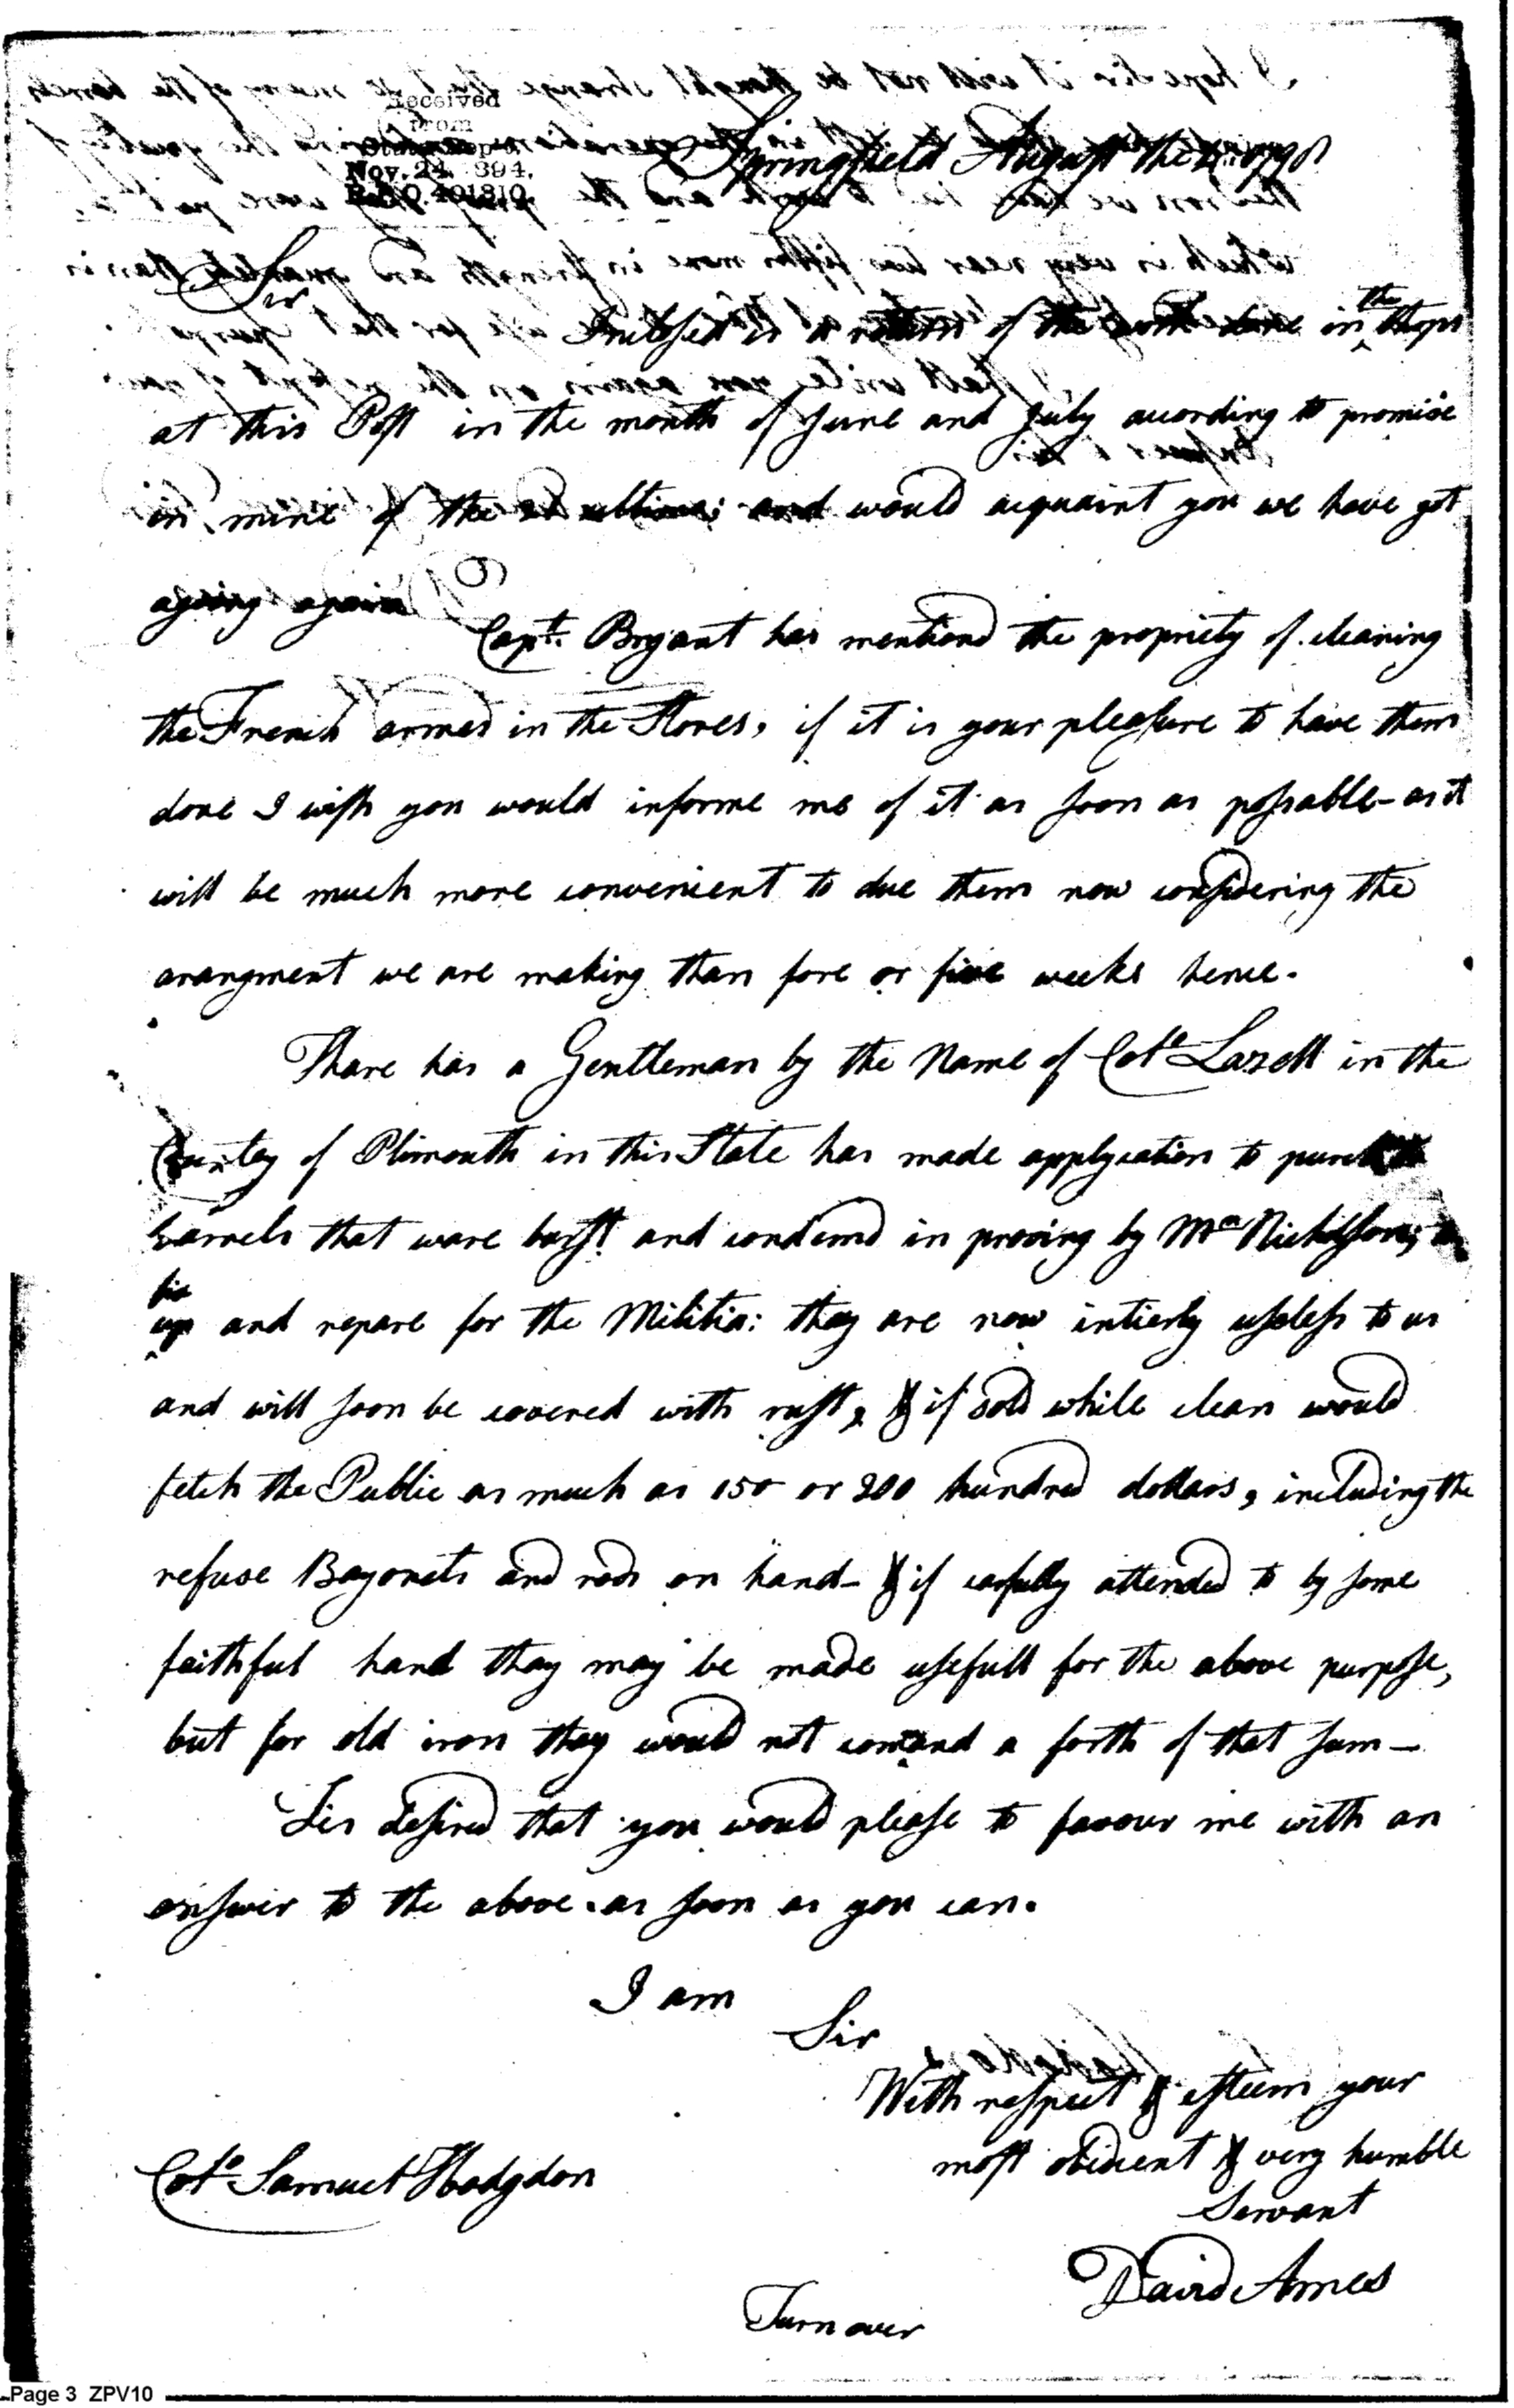 Received
from
Nov. 24. 1894.
R.&P. 401310
Springfield August the 1798
Sir
Inclosed is a return of the work done in the Shops
at this Post in the month of June and July according to promise
in mine of the ultimo; and would acquaint you we have got
agoing again
Capt. Bryant has mentiond the propriety of cleaning
the French armes in the Stores, if it is your pleasure to have them
done I wish you would informe me of it as soon as possable - as it
will be much more convenient to due them now considering the
arangment we are making than fore or five weeks hence.
Thare has a Gentleman by the Name of Colo. Lazell in the
Countey of Plimouth in this State has made applycation to purch
barrels that ware burst and condemd in proving by Mr. Nicholson;
fix
up and repare for the Militia: they are now intierly useless to us
and will soon be covered with rust, & if sold while clean would
fetch the Public as much as 150 or 200 hundred dollars, including the
refuse Bayonets and rods on hand - & if carfully attended to by some
faithful hand thay may be made usefull for the above purpose,
but for old iron they would not comand a forth of that sum -
Tis desired that you would please to favour me with an
answer to the above as soon as you can.
I am
Sir
With respect & esteem your
most obidient & very humble
Servant
Colo. Samuel Hodgdon
David Ames
Turn over
Page 3 ZPV10